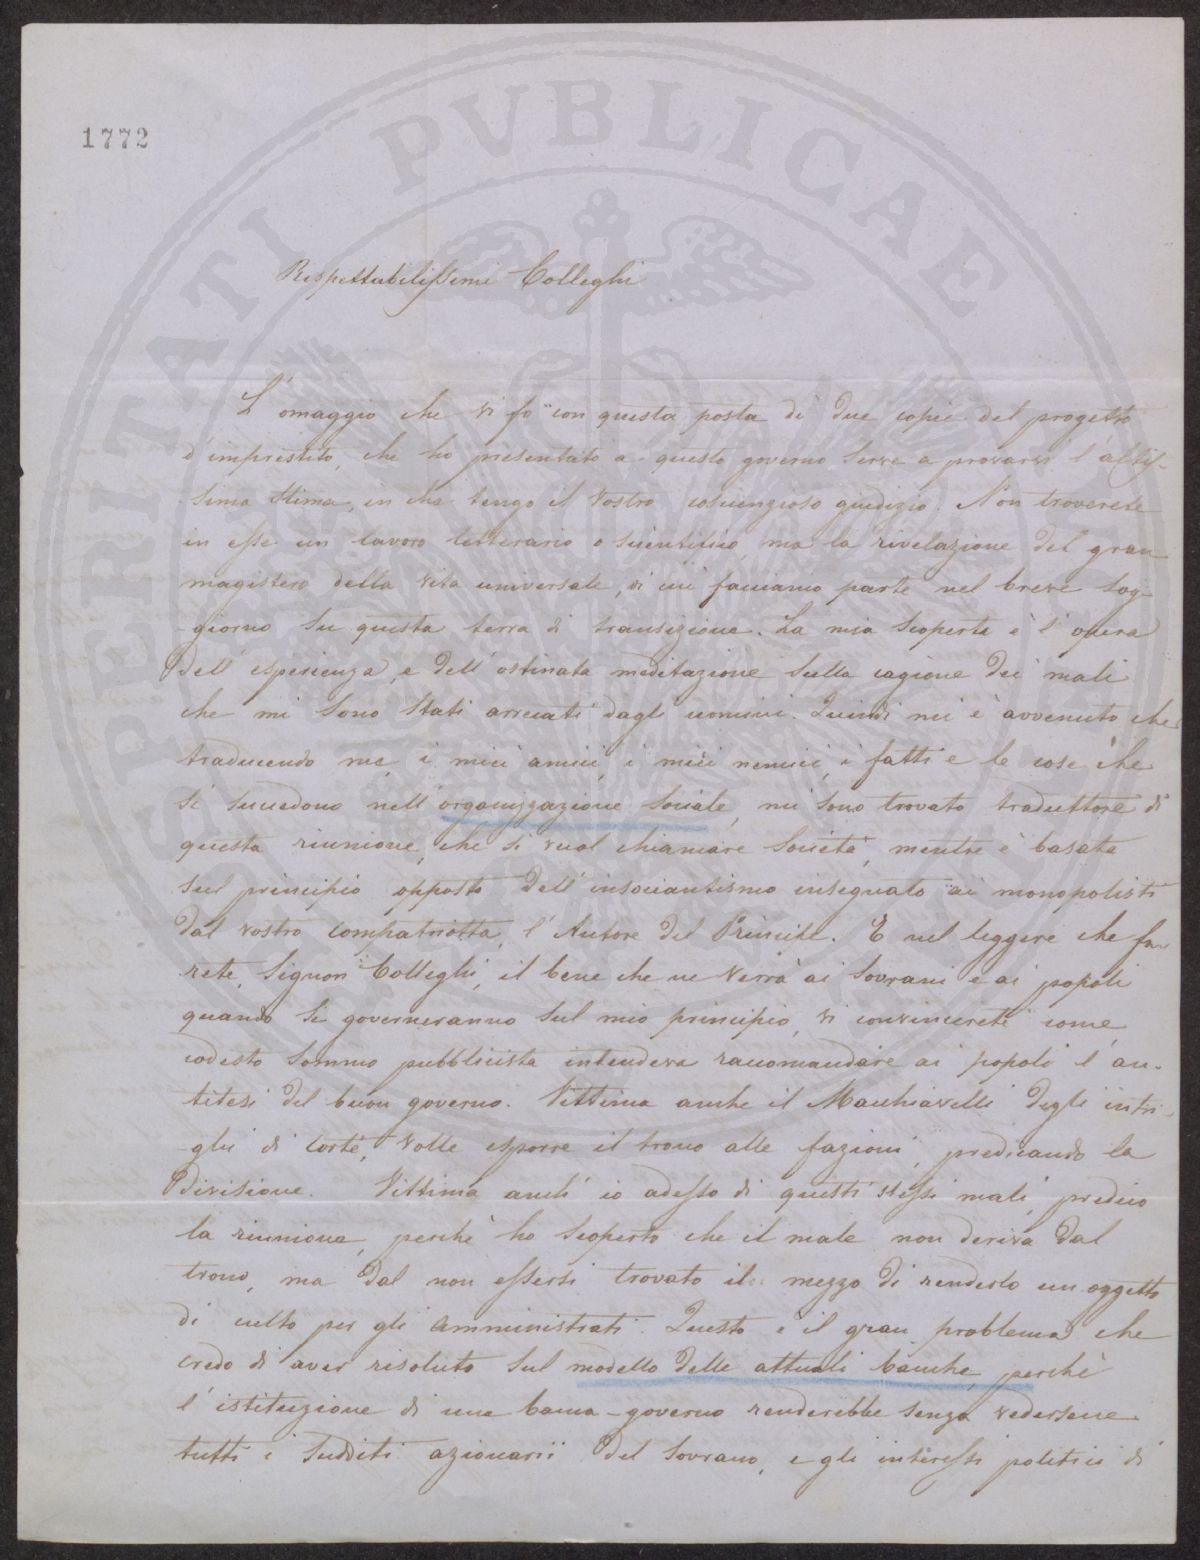 PROSPERITATI PUBLICAE
1772
Rispettabilissimi Colleghi
L'omaggio che vi fo con questa posta di due copie del progetto
d'imprestito, che ho presentato a questo governo serve a provarvi l'altis-
sima stima, in che tengo il vostro coscienzioso giudizio. Non troverete
in esse un lavoro letterario o scientifico, ma la rivelazione del gran
magistero della vita universale, di cui facciamo parte nel breve sog-
giorno su questa terra di transizione. La mia scoperta è l'opera
dell'esperienza, e dell'ostinata meditazione sulla cagione dei mali
che mi sono stati arrecati dagli uomini. Quindi mi è avvenuto che
traducendo me, i miei amici, i miei nemici, i fatti e le cose che
si succedono nell'organizzazione sociale, mi sono trovato traduttore di
questa riunione, che si vuol chiamare Società, mentre è basata
sul principio opposto dell'insociantismo insegnato ai monopolisti
dal vostro compatriotta, l'Autore del Principe. E nel leggere che fa-
rete, Signori Colleghi, il bene che ne verrà ai Sovrani e ai popoli
quando si governeranno sul mio principio, vi convincerete come
codesto sommo pubblicista intendeva raccomandare ai popoli l'an-
titesi del buon governo. Vittima anche il Macchiavelli degli intri-
ghi di Corte, volle esporre il trono alle fazioni, predicando la
divisione. Vittima anch'io adesso di questi stessi mali, predico
la riunione, perchè ho scoperto che il male non deriva dal
trono, ma dal non essersi trovato il mezzo di renderlo un oggetto
di culto per gli amministrati. Questo è il gran problema che
credo di aver risoluto sul modello delle attuali banche, perchè
l'istituzione di una banca-governo renderebbe senza vedersene
tutti i sudditi azionarii del Sovrano, e gli interessi politici di